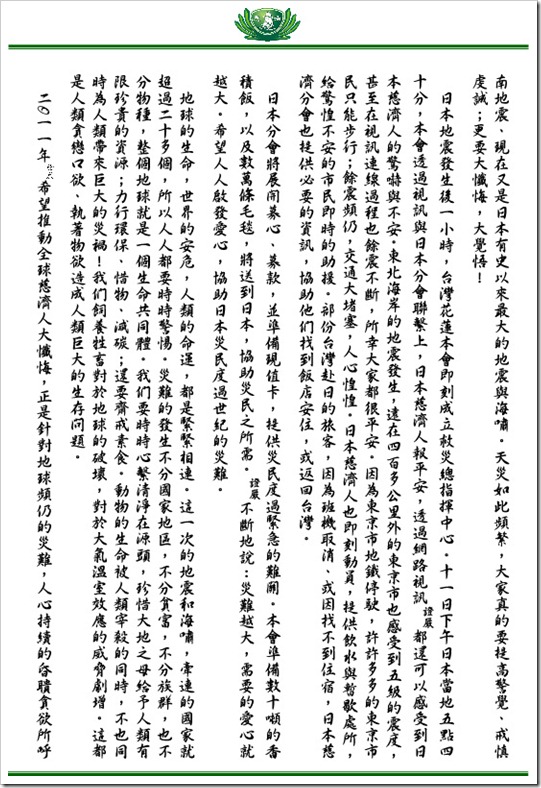 南地震、現在又是日本有史以來最大的地震與海嘯。天災如此頻繁,大家真的要提高警覺、戒慎
虔誠;更要大懺悔,大覺悟!
日本地震發生後一小時,台灣花蓮本會即刻成立救災總指揮中心。十一日下午日本當地五點四
十分,本會透過視訊與日本分會聯繫上,日本慈濟人報平安,透過網路視訊 證嚴 都還可以感受到日
本慈濟人的驚嚇與不安。東北海岸的地震發生,遠在四百多公里外的東京市也感受到五級的震度,
甚至在視訊連線過程也餘震不斷,所幸大家都很平安。因為東京市地鐵停駛,許許多多的東京市
民只能步行;餘震頻仍,交通大堵塞,人心惶惶。日本慈濟人也即刻動員,提供飲水與暫歇處所,
給驚惶不安的市民即時的助援。部份台灣赴日的旅客,因為班機取消、或因找不到住宿,日本慈
濟分會也提供必要的資訊,協助他們找到飯店安住,或返回台灣。
日本分會將展開募心、募款,並準備現值卡,提供災民度過緊急的難關。本會準備數十噸的香
積飯,以及數萬條毛毯,將送到日本,協助災民之所需。 證嚴 不斷地說:災難越大,需要的愛心就
越大。希望人人啟發愛心,協助日本災民度過世紀的災難。
地球的生命,世界的安危,人類的命運,都是緊緊相連。這一次的地震和海嘯,牽連的國家就
超過二十多個,所以人人都要時時警惕。災難的發生不分國家地區,不分貧富,不分族群,也不
分物種,整個地球就是一個生命共同體。我們要時時心繫清淨在源頭,珍惜大地之母給予人類有
限珍貴的資源;力行環保、惜物、減碳;還要齋戒素食。動物的生命被人類宰殺的同時,不也同
時為人類帶來巨大的災禍!我們飼養牲畜對於地球的破壞,對於大氣溫室效應的威脅劇增。這都
是人類貪戀口欲、執著物欲造成人類巨大的生存問題。
二○一一年 希望推動全球慈濟人大懺悔,正是針對地球頻仍的災難,人心持續的昏聵貪欲所呼